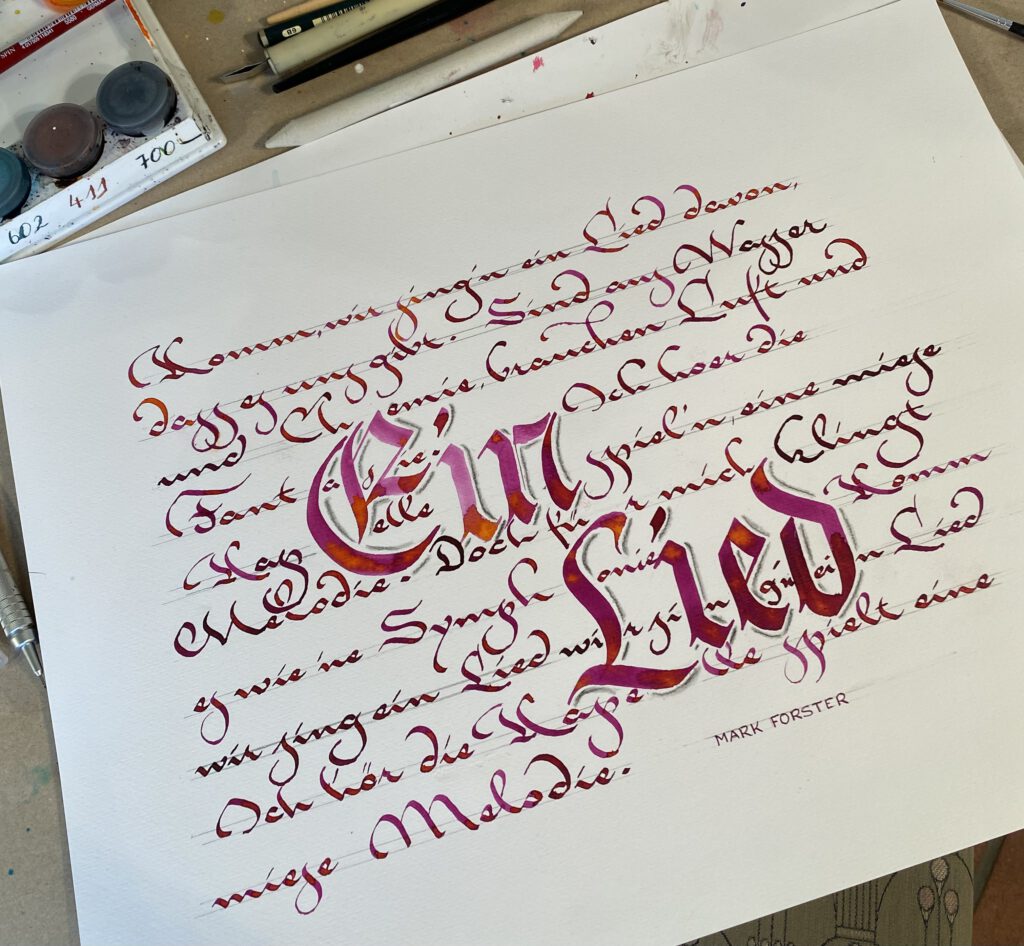 602 411 700
Komm, wir sing'n ein Lied davon,
dass es uns gibt. Sind aus Wasser
und Chemie, brauchen Luft und
Fantasie! Ich hoer die
Kapelle spiel'n, eine miese
Melodie. Doch für mich klingt
es wie 'ne Symphonie. Komm
wir sing ein Lied wir singen ein Lied
Ich hör die Kapelle spielt eine
miese Melodie.
Ein
Lied
MARK FORSTER